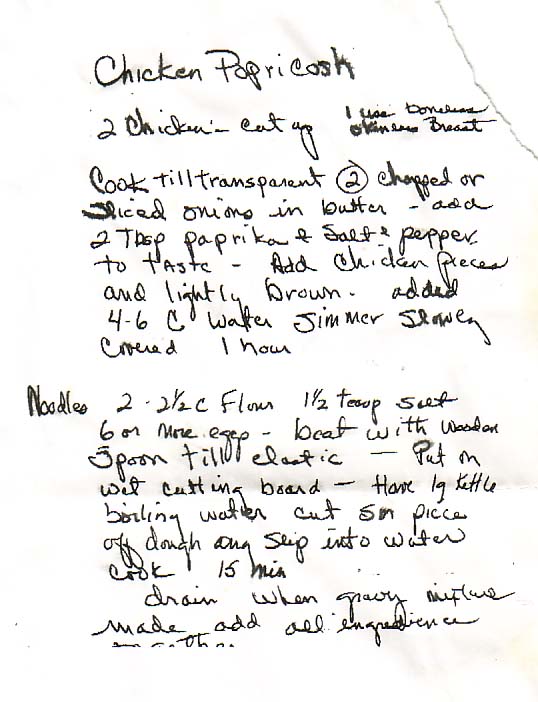 Chicken Papricosh
2 Chicken's cut up
I use Boneless
skinless Breast
Cook till transparent ② chopped or
sliced onions in butter - add
2 Tbsp paprika & Salt & pepper
to taste - Add Chicken pieces
and lightly brown. added
4-6 C water simmer slowly
Covered 1 hour
Noodles 2 - 2½ C Flour 1½ teasp salt
6 or more eggs - beat with wooden
Spoon till elastic - Put on
wet cutting board - Have lg kettle
boiling water cut sm piece
off dough and slip into water
cook 15 min
drain when gravy mixture
made add all ingredience
together